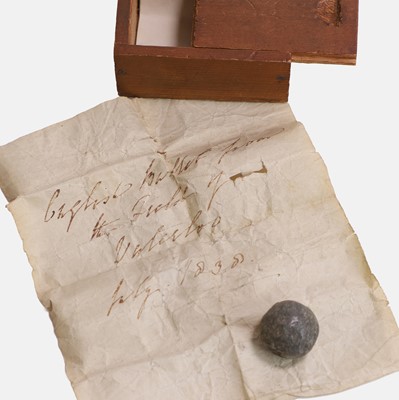 English bullet from
the Field of
Waterloo
July 1838.